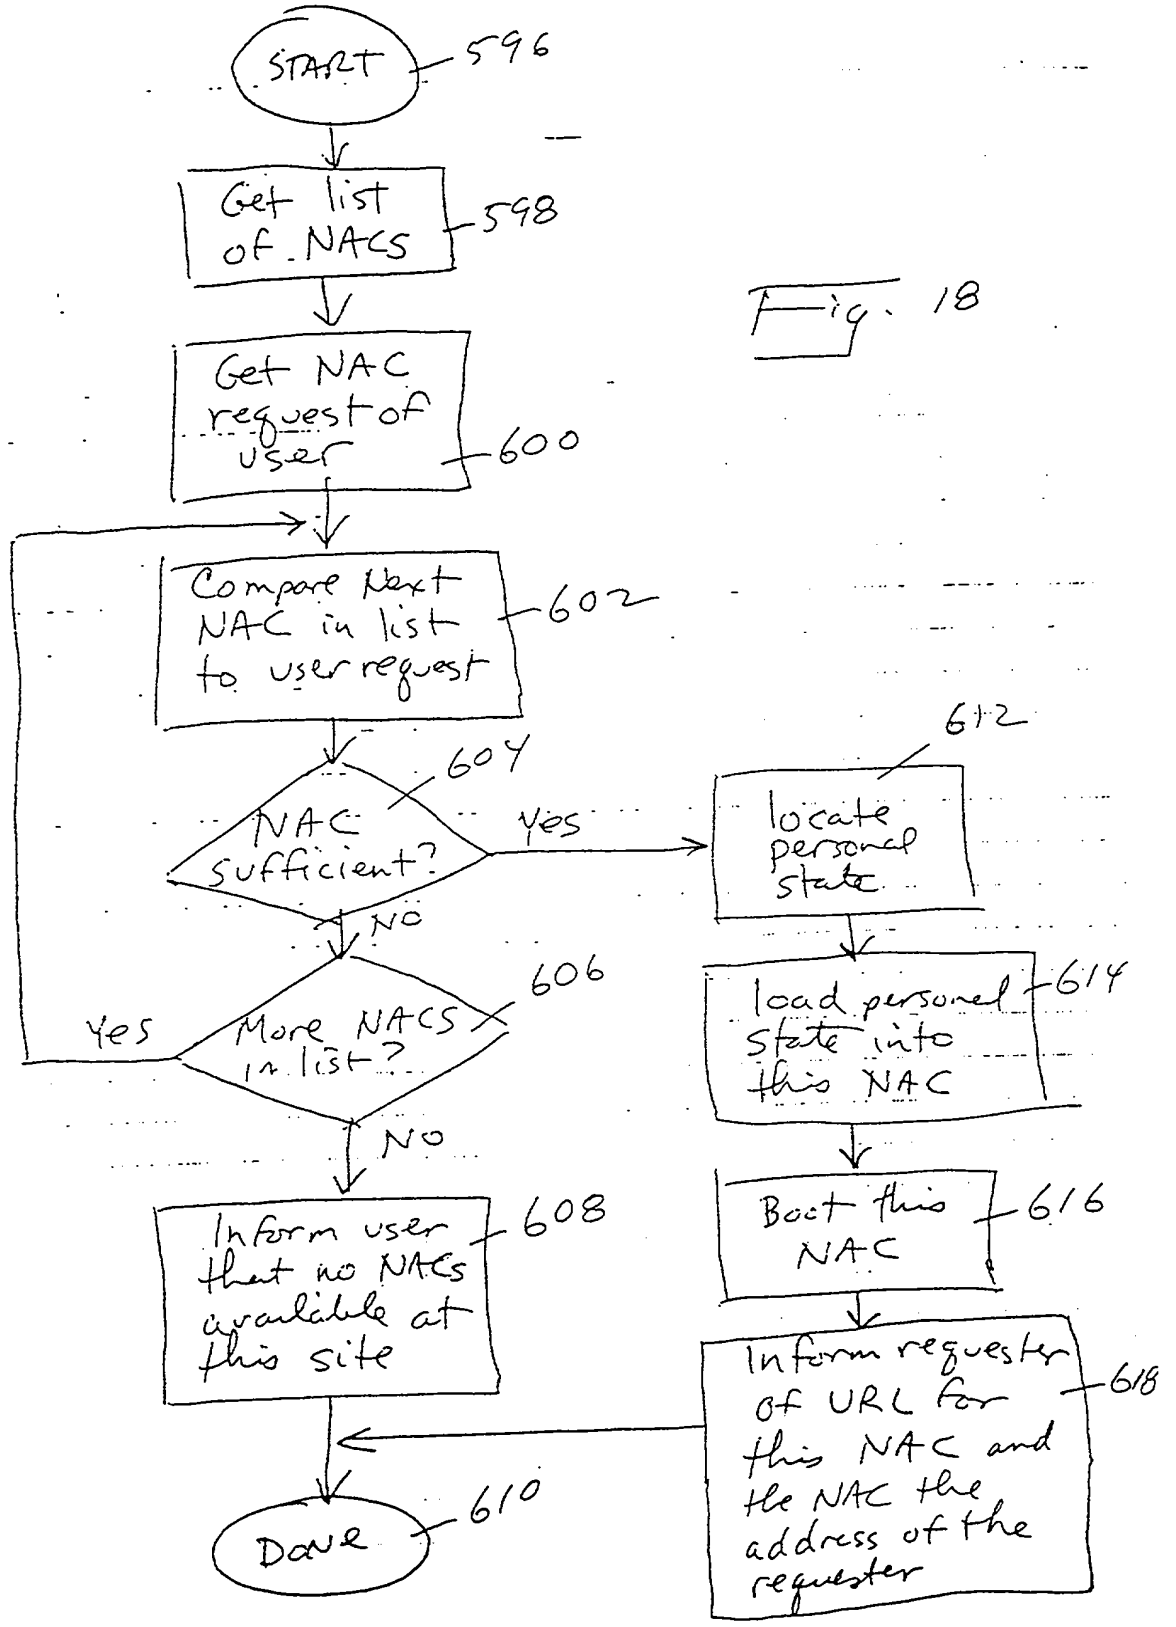 START
596
Get list
of NACS
598
Fig. 18
Get NAC
request of
user
600
Compare Next
NAC in list
to user request
602
604
NAC
sufficient?
Yes
NO
606
More NACS
in list?
Yes
NO
Inform user
that no NACs
available at
this site
608
Done
610
612
locate
personal
state
load personal
state into
this NAC
614
Boot this
NAC
616
Inform requester
of URL for
this NAC and
the NAC the
address of the
requester
618